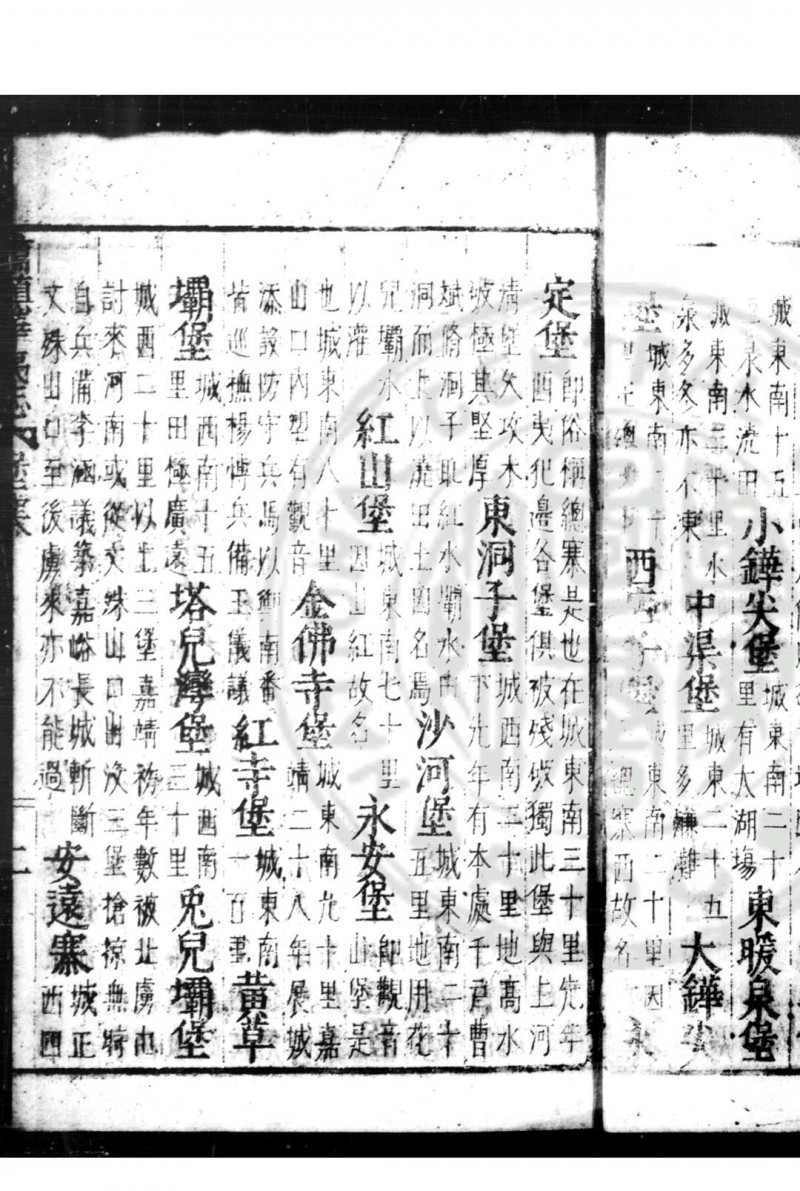 城東南十五
里泉水流田
小鏵尖堡
城東南二十
里有大湖場
東暖泉堡
城東南三十里水
泉多冬亦不凍
中渠堡
城東二十五
里多鹻灘
大鏵尖
堡
城東南二十
西
堡
城東南二十里因
總寨西故名
永
定堡
即俗稱總寨是也在城東南三十里先年
西夷犯邊各堡俱被殘破獨此堡與上河
清堡失攻木
破極其堅厚
東洞子堡
城西南二十里地高水
下先年有本處千戶曹
斌脩洞子取紅水壩水由
洞而上以澆田土窩名焉
沙河堡
城東南二十
五里地用花
兒壩水
以灌
紅山堡
城東南七十里
因山紅故名
永安堡
即觀音
山堡是
也城東南八十里
山口內塑有觀音
金佛寺堡
城東南九十里嘉
靖二十八年展城
添設防守兵馬以衛南番
皆巡撫楊愽兵備王儀議
紅寺堡
城東南
一百里
黃草
壩堡
城西南十五
里田極廣遠
塔兒灣堡
城西南
三十里
兎兒壩堡
城西二十里以上三堡嘉靖初年數被北虜由
討來河南或從文殊山口出沒三堡搶掠無時
自兵備李涵議築嘉峪長城斬斷
文殊山口至後虜來亦不能過
安遠寨
城正
西四
肅鎮華夷志 堡寨 二